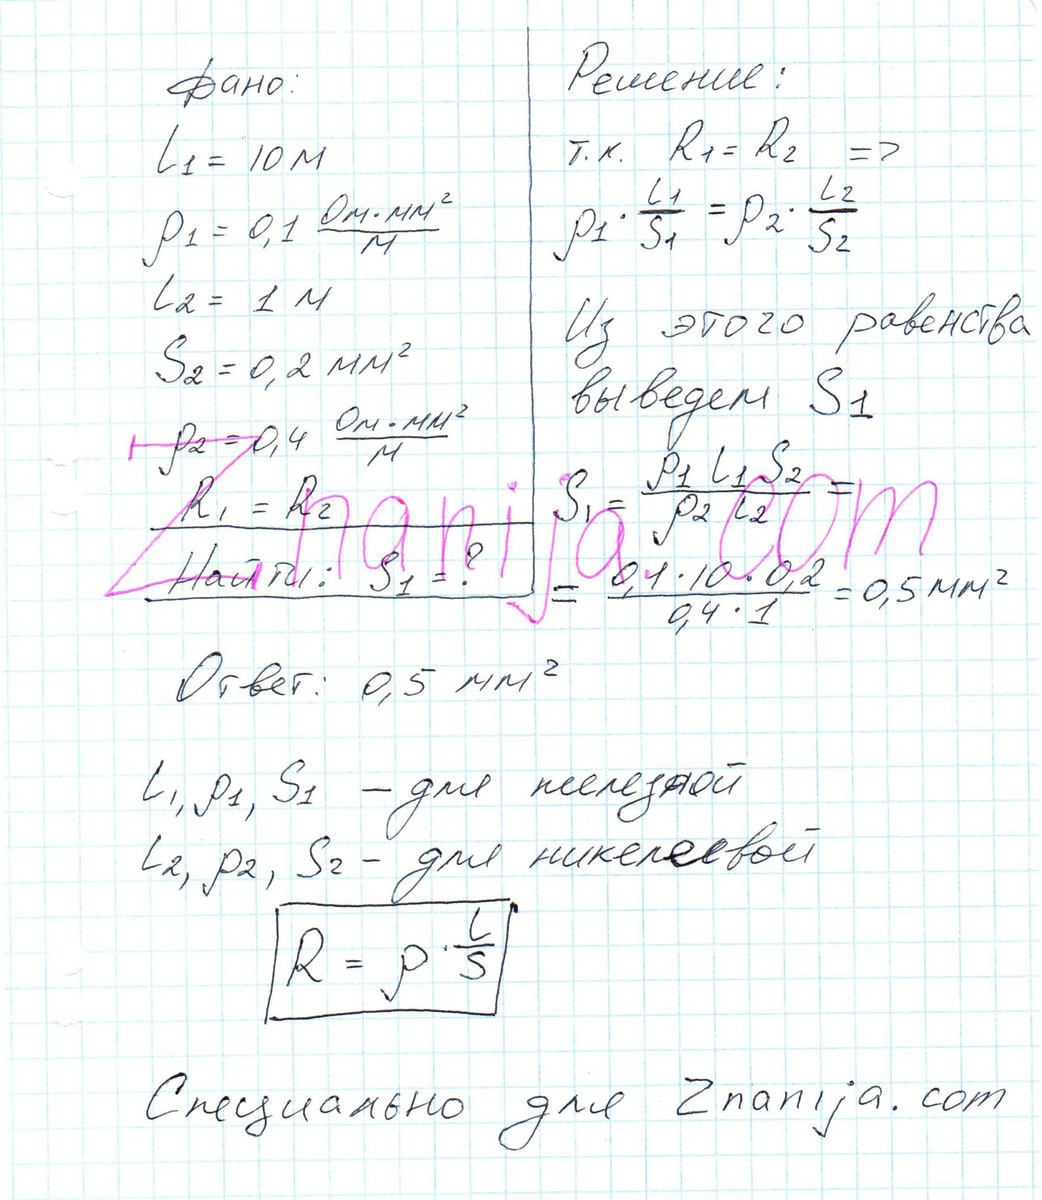 Дано:
L1 = 10 м
ρ1 = 0,1 Ом·мм²/м
L2 = 1 м
S2 = 0,2 мм²
ρ2 = 0,4 Ом·мм²/м
R1 = R2
Найти: S1 = ?
Решение:
т.к. R1 = R2 =>
ρ1 · L1/S1 = ρ2 · L2/S2
Из этого равенства
выведем S1
S1 = ρ1 L1 S2 / ρ2 L2 =
= 0,1 · 10 · 0,2 / 0,4 · 1 = 0,5 мм²
Znanija.com
Ответ: 0,5 мм²
L1, ρ1, S1 – для железной
L2, ρ2, S2 – для никелевой
R = ρ · L/S
Специально для Znanija.com